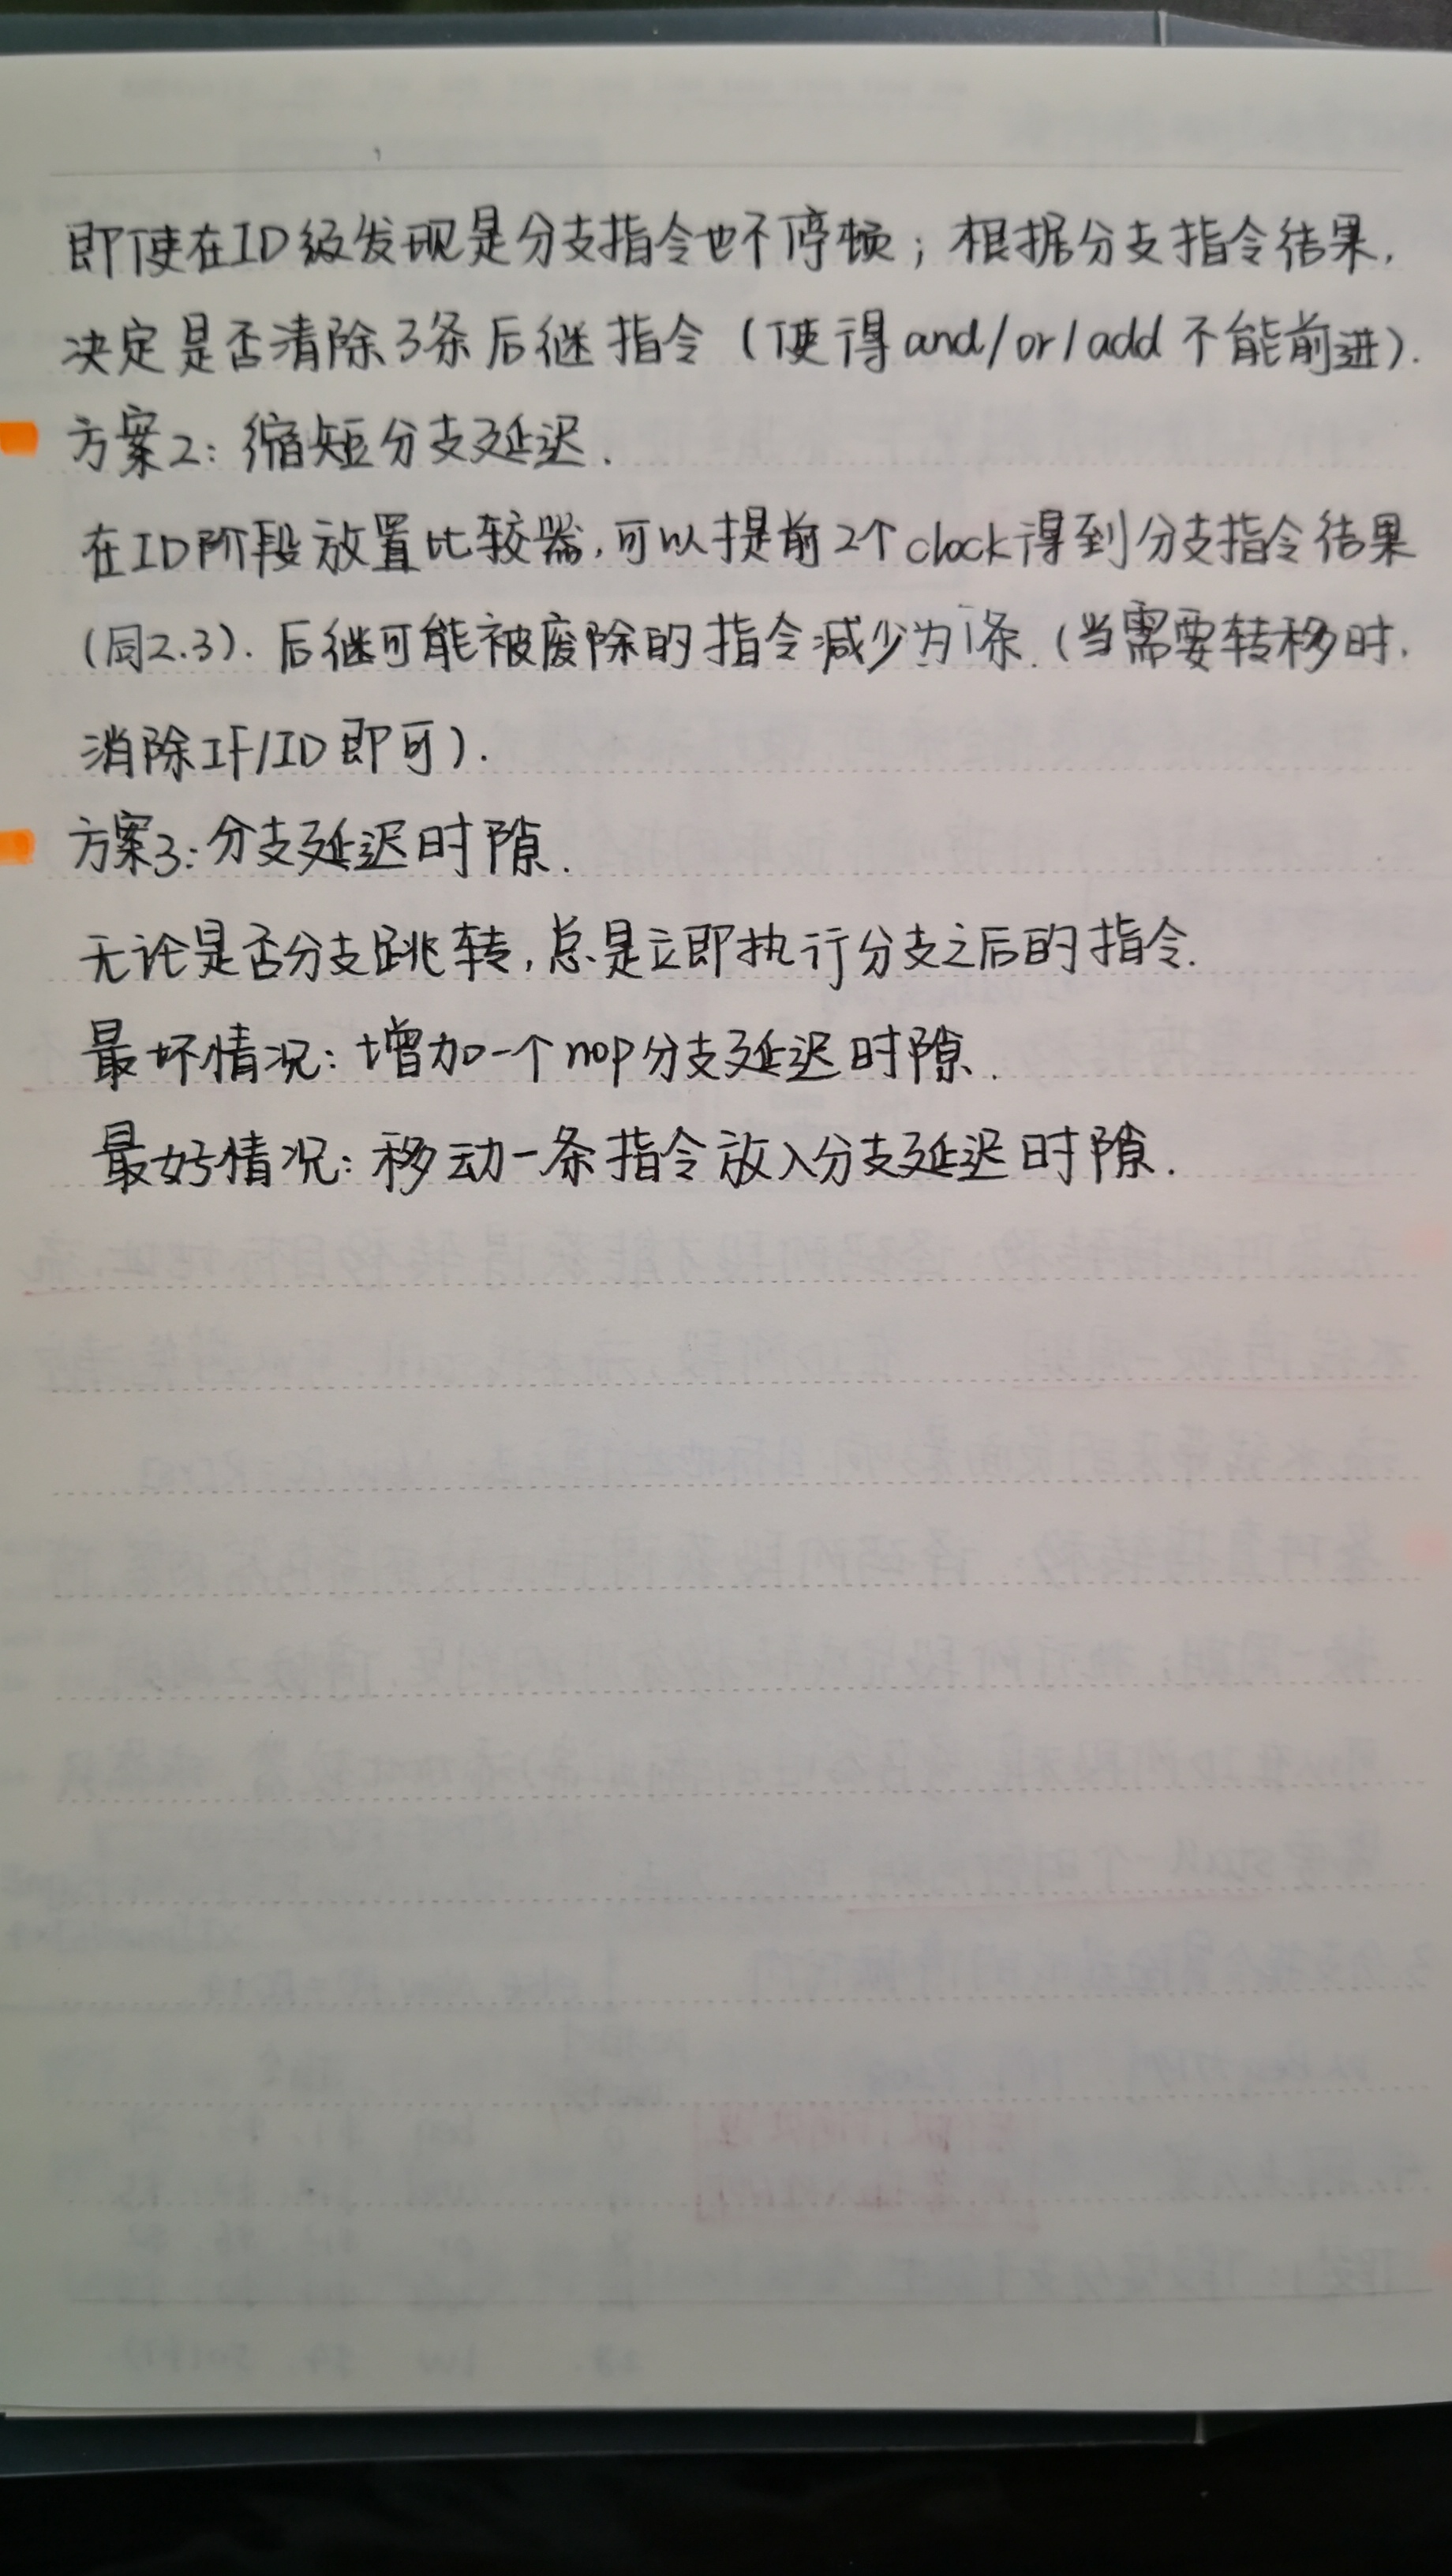 即使在ID级发现是分支指令也不停顿；根据分支指令结果，
决定是否清除3条后继指令（使得and/or/add不能前进）.
方案2：缩短分支延迟.
在ID阶段放置比较器，可以提前2个clock得到分支指令结果
（同2.3）. 后继可能被废除的指令减少为1条.（当需要转移时，
消除IF/ID即可）.
方案3：分支延迟时隙.
无论是否分支跳转，总是立即执行分支之后的指令.
最坏情况：增加一个nop分支延迟时隙.
最好情况：移动一条指令放入分支延迟时隙.